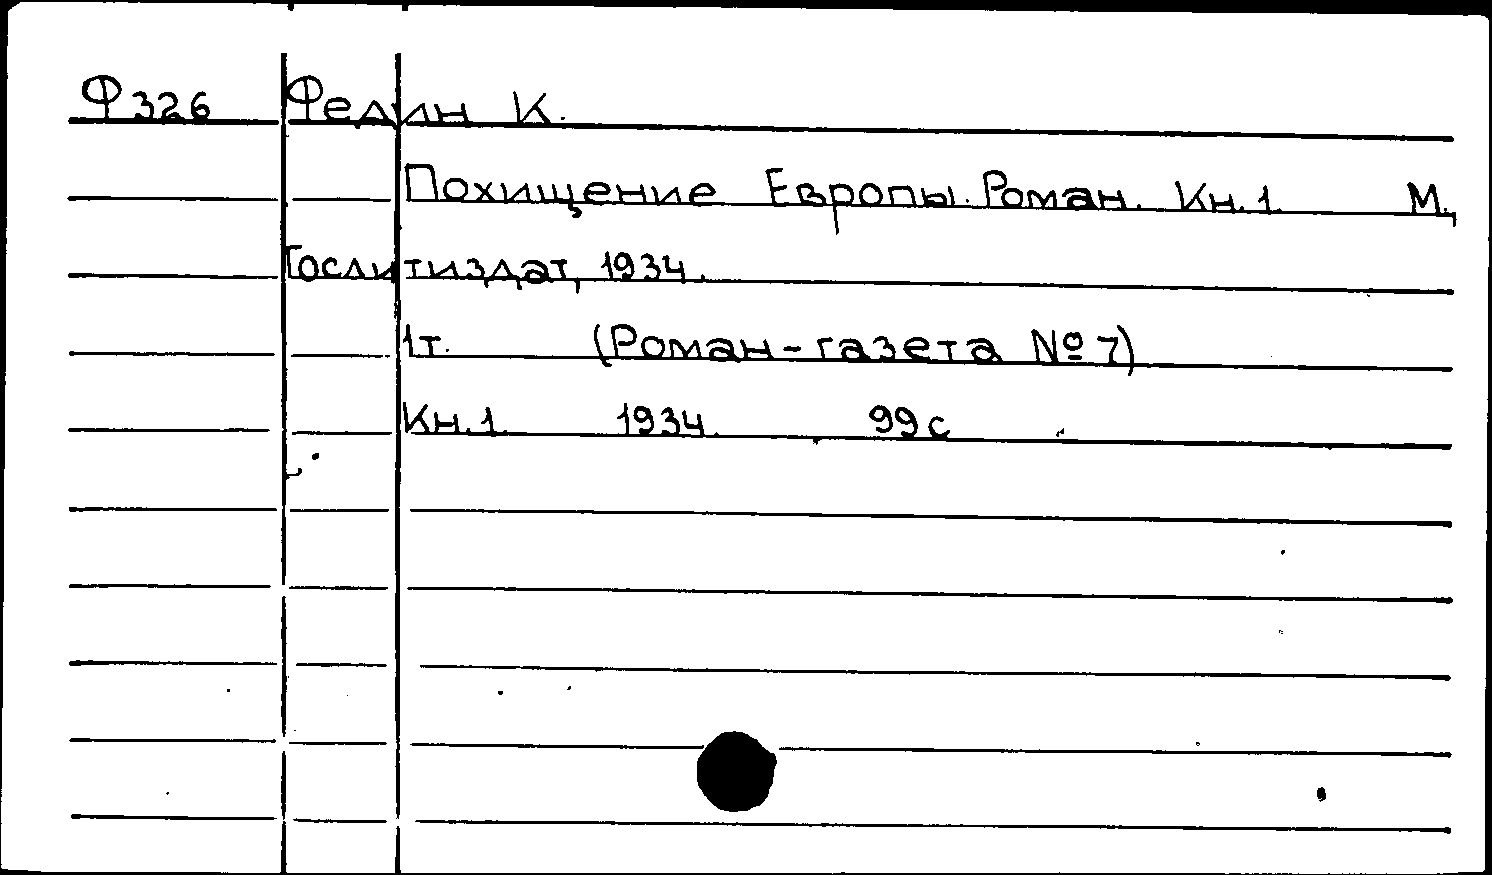 Ф326 Федин К.
Похищение Европы. Роман. Кн.1 М.,
Гослитиздат, 1934.
1т. (Роман-газета № 7)
Кн.1. 1934. 99с